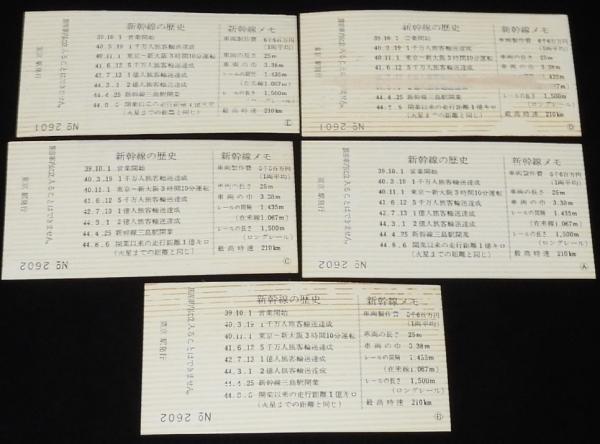 新幹線の歴史
39.10.1 営業開始
40.3.19 1千万人旅客輸送達成
40.11.1 東京―新大阪3時間10分運転
41.6.12 5千万人旅客輸送達成
42.7.13 1億人旅客輸送達成
44.3.1 2億人旅客輸送達成
44.4.25 新幹線三島駅開業
44.8.6 開業以来の走行距離1億キロ
(火星までの距離と同じ)
新幹線メモ
車両製作費
(1両平均)
車両の長さ 25m
車両の巾 3.38m
レールの間隔 1.435m
(在来線1.067m)
レールの長さ 1,500m
(ロングレール)
最高時速 210km
東京駅発行
№ 2601
新幹線の歴史
39.10.1 営業開始
40.3.19 1千万人旅客輸送達成
40.11.1 東京―新大阪3時間10分運転
41.6.12 5千万人旅客輸送達成
(火星までの距離と同じ)
新幹線メモ
車両製作費 6千6百万円
(1両平均)
車両の長さ 25m
車両の巾 3.38m
(在来線1.067m)
レールの長さ 1,500m
(ロングレール)
最高時速 210km
東京駅発行
№ 2601
新幹線の歴史
39.10.1 営業開始
40.3.19 1千万人旅客輸送達成
40.11.1 東京―新大阪3時間10分運転
41.6.12 5千万人旅客輸送達成
42.7.13 1億人旅客輸送達成
44.3.1 2億人旅客輸送達成
44.4.25 新幹線三島駅開業
44.8.6 開業以来の走行距離1億キロ
(火星までの距離と同じ)
新幹線メモ
車両製作費
(1両平均)
車両の長さ 25m
車両の巾 3.38m
レールの間隔 1.435m
(在来線1.067m)
レールの長さ 1,500m
(ロングレール)
最高時速 210km
Ⓒ
東京駅発行
№ 2602
新幹線の歴史
39.10.1 営業開始
40.3.19 1千万人旅客輸送達成
40.11.1 東京―新大阪3時間10分運転
41.6.12 5千万人旅客輸送達成
42.7.13 1億人旅客輸送達成
44.3.1 2億人旅客輸送達成
44.4.25 新幹線三島駅開業
44.8.6 開業以来の走行距離1億キロ
(火星までの距離と同じ)
新幹線メモ
車両製作費 6千6百万円
(1両平均)
車両の長さ 25m
車両の巾 3.38m
レールの間隔 1.435m
(在来線1.067m)
レールの長さ 1,500m
(ロングレール)
最高時速 210km
Ⓐ
東京駅発行
№ 2602
新幹線の歴史
39.10.1 営業開始
40.3.19 1千万人旅客輸送達成
40.11.1 東京―新大阪3時間10分運転
41.6.12 5千万人旅客輸送達成
42.7.13 1億人旅客輸送達成
44.3.1 2億人旅客輸送達成
44.4.25 新幹線三島駅開業
44.8.6 開業以来の走行距離1億キロ
(火星までの距離と同じ)
新幹線メモ
車両製作費 6千6百万円
(1両平均)
車両の長さ 25m
車両の巾 3.38m
レールの間隔 1.435m
(在来線1.067m)
レールの長さ 1,500m
(ロングレール)
最高時速 210km
Ⓑ
東京駅発行
№ 2602